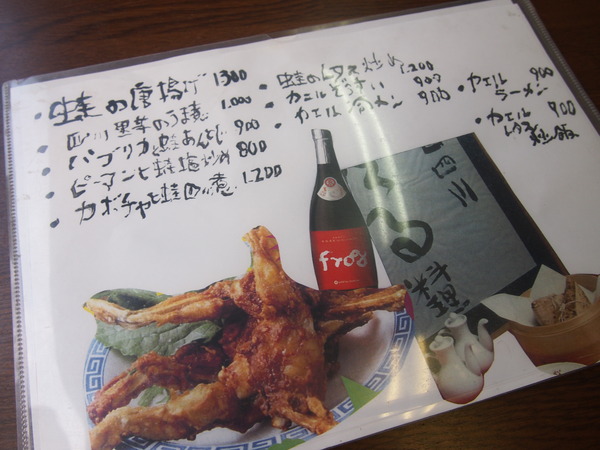 ・蛙の唐揚げ 1300
・四川 里芋のうま煮 1.000
・パプリカと蛙あんかけ 900
・ピーマンと蛙塩炒め 800
・カボチャと蛙四川煮 1.200
・蛙の 炒め 1.200
・カエル 900
・カエル メン 900
・カエル ラーメン 900
・カエル 炒飯 900
frog
四川
料理